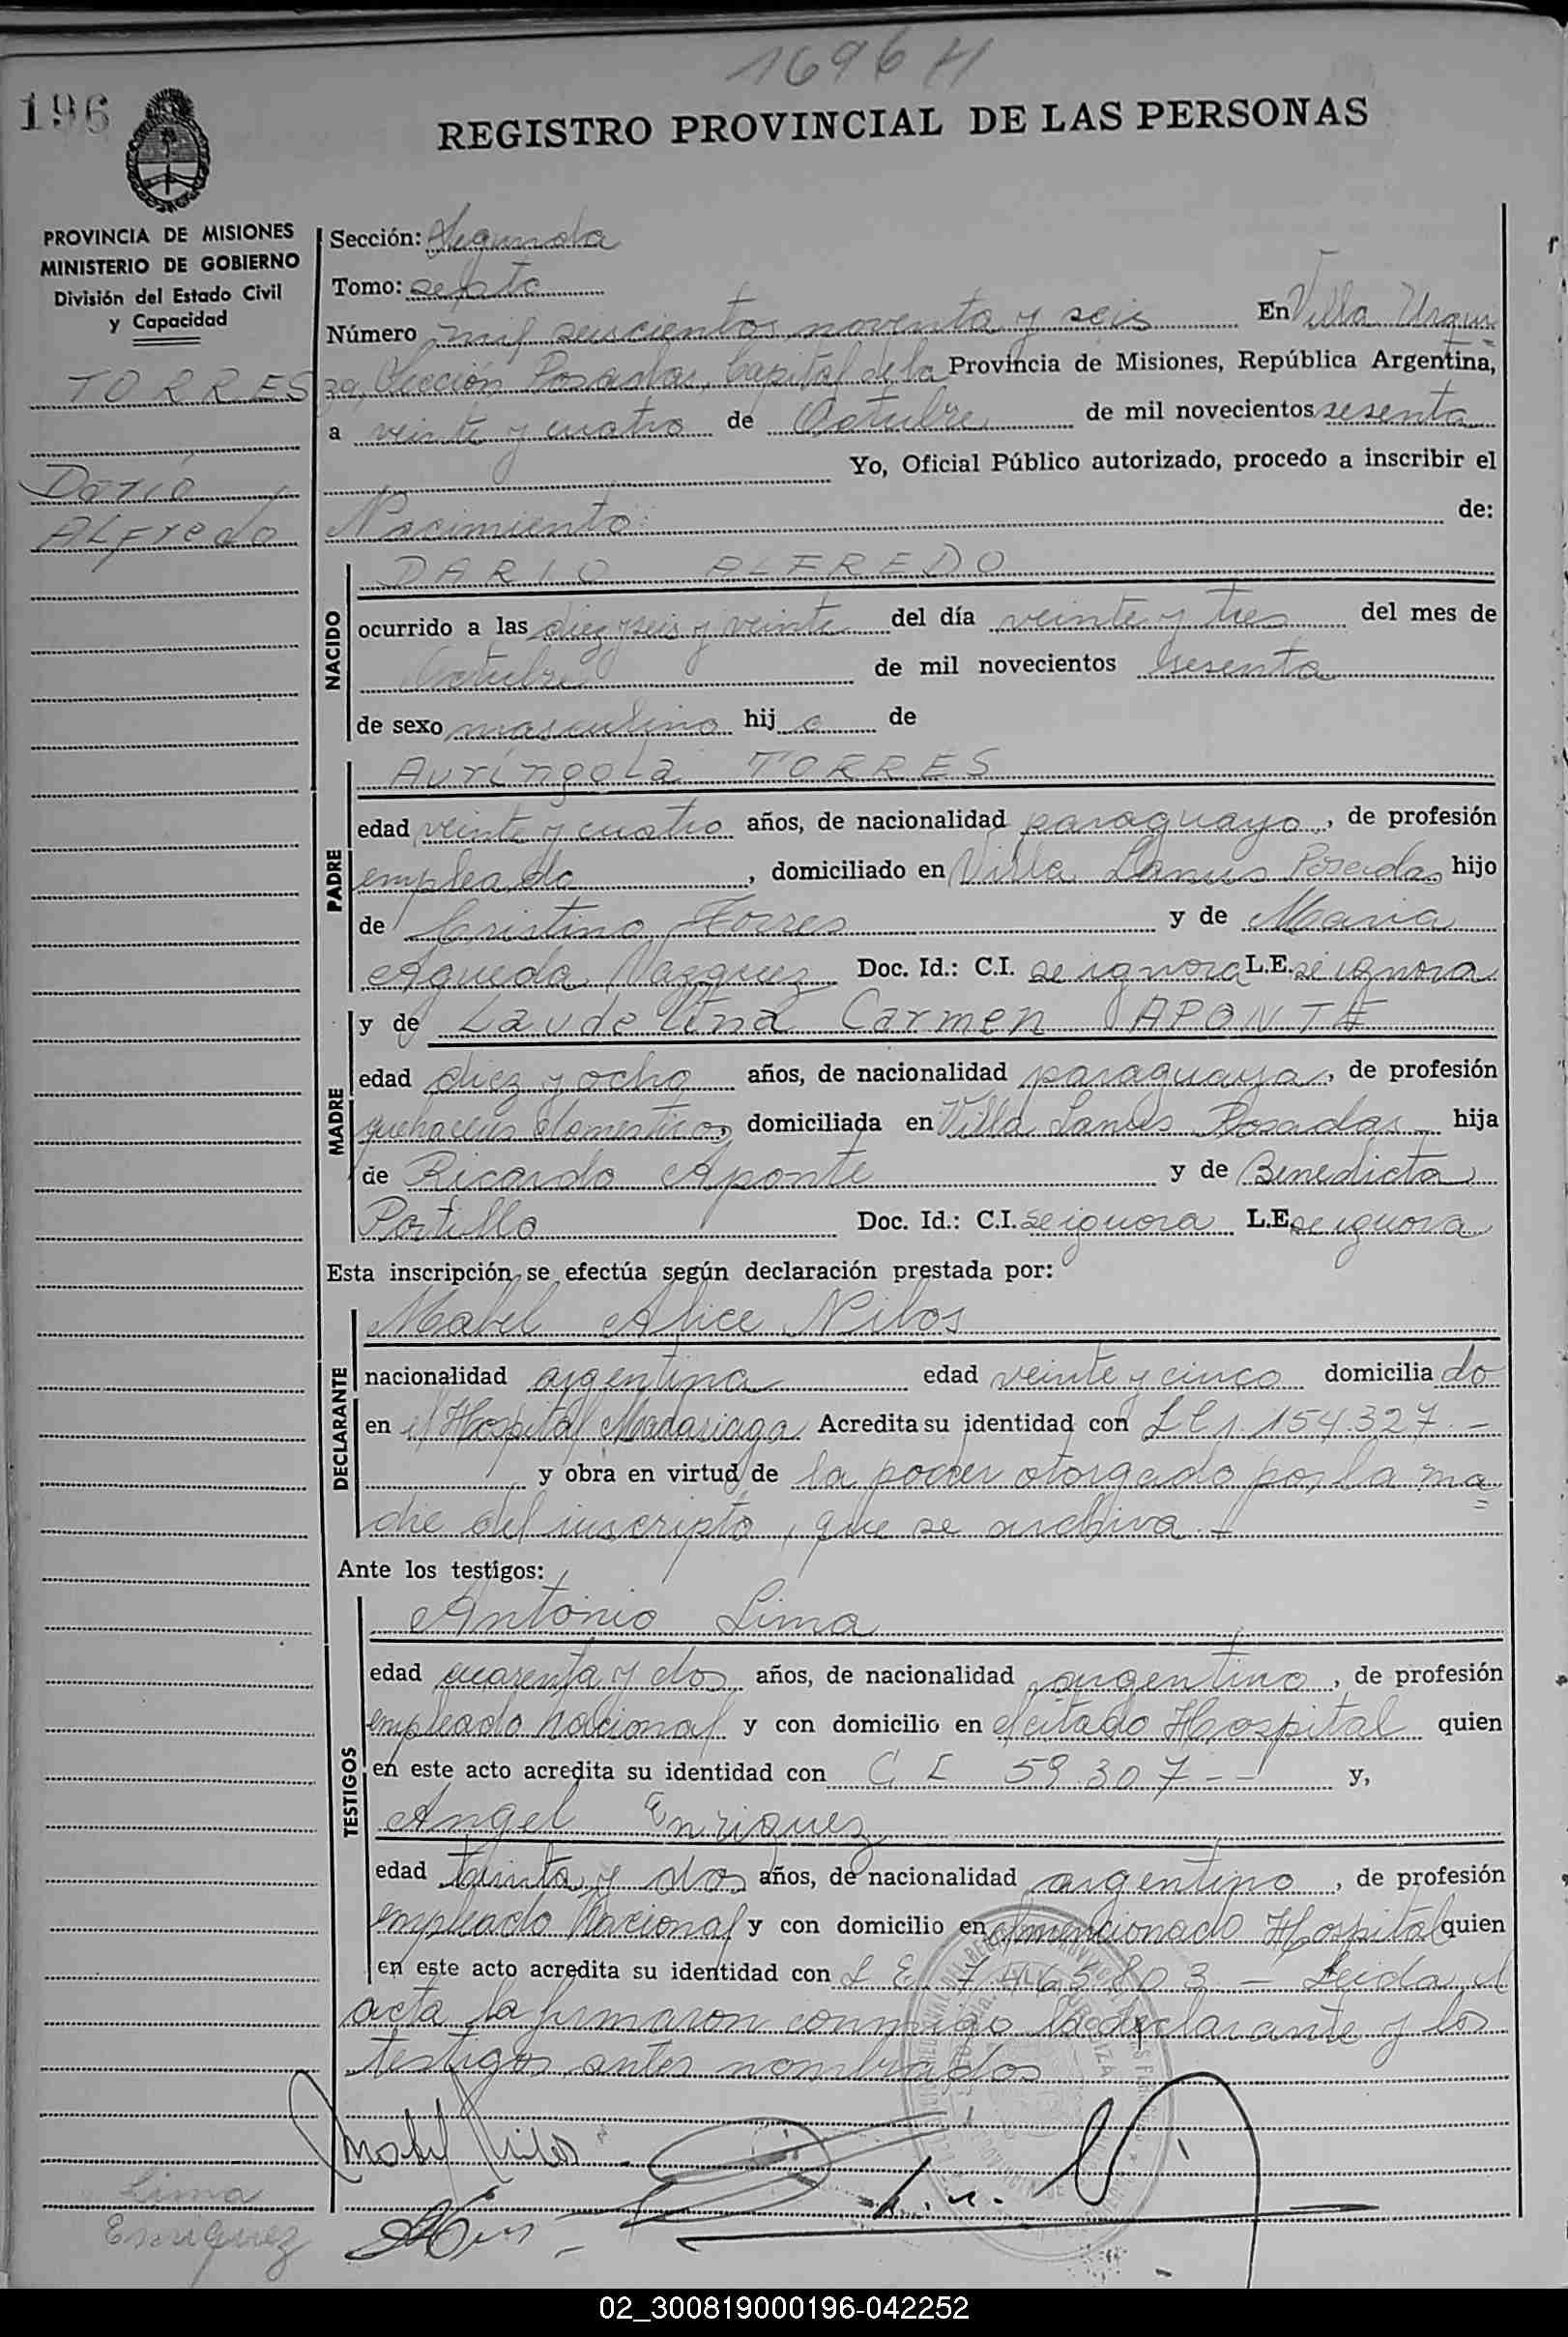 1696 H
196
REGISTRO PROVINCIAL DE LAS PERSONAS
PROVINCIA DE MISIONES
MINISTERIO DE GOBIERNO
División del Estado Civil
y Capacidad
TORRES
Darío
ALFredo
Sección: Segunda
Tomo: septo
Número mil seiscientos noventa y seis En Villa Urqui=
za, Sección Posadas, Capital de la Provincia de Misiones, República Argentina,
a veinte y cuatro de Octubre de mil novecientos sesenta
Yo, Oficial Público autorizado, procedo a inscribir el
Nacimiento de:
NACIDO
DARIO ALFREDO
ocurrido a las diez y seis y veinte del día veinte y tres del mes de
Octubre de mil novecientos sesenta
de sexo masculino hijo de
PADRE
Auríngola TORRES
edad veinte y cuatro años, de nacionalidad paraguayo, de profesión
empleado, domiciliado en Villa Lanus Posadas hijo
de Cristino Torres y de Maria
Agueda Vazquez Doc. Id.: C.I. se ignora L.E. se ignora
MADRE
y de Laudelina Carmen APONTE
edad diez y ocho años, de nacionalidad paraguaya, de profesión
quehaceres domesticos, domiciliada en Villa Lanus Posadas hija
de Ricardo Aponte y de Benedicta
Portillo Doc. Id.: C.I. se ignora L.E. se ignora
Esta inscripción se efectúa según declaración prestada por:
DECLARANTE
Mabel Alice Nilos
nacionalidad argentina edad veinte y cinco domiciliado
en el Hospital Madariaga Acredita su identidad con L C 1.154.327.-
y obra en virtud de la poder otorgado por la ma=
dre del inscripto, que se archiva.-
Ante los testigos:
TESTIGOS
Antonio Lima
edad cuarenta y dos años, de nacionalidad argentino, de profesión
empleado nacional y con domicilio en el citado Hospital quien
en este acto acredita su identidad con C I 59.307-- y,
Angel Enriquez
edad treinta y dos años, de nacionalidad argentino, de profesión
empleado Nacional y con domicilio en el mencionado Hospital quien
en este acto acredita su identidad con L E 7.465.803 - Leida el
acta la firmaron conmigo la declarante y los
testigos antes nombrados
Mabel Nilos
Lima
Enriquez
02_300819000196-042252